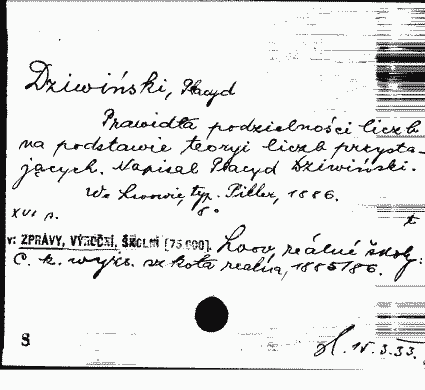 Dziwiński, Placyd
Prawidła podzielności liczb
na podstawie teoryi liczb przysta-
jących. Napisał Placyd Dziwiński.
We Lwowie, typ. Piller, 1886.
XVI s. 8°
v: ZPRÁVY, VÝROČNÍ, ŠKOLNÍ [75 000]. Lvov, reálné školy:
C. k. wyżs. szkoła realna, 1885/86.
S
15.3.33.